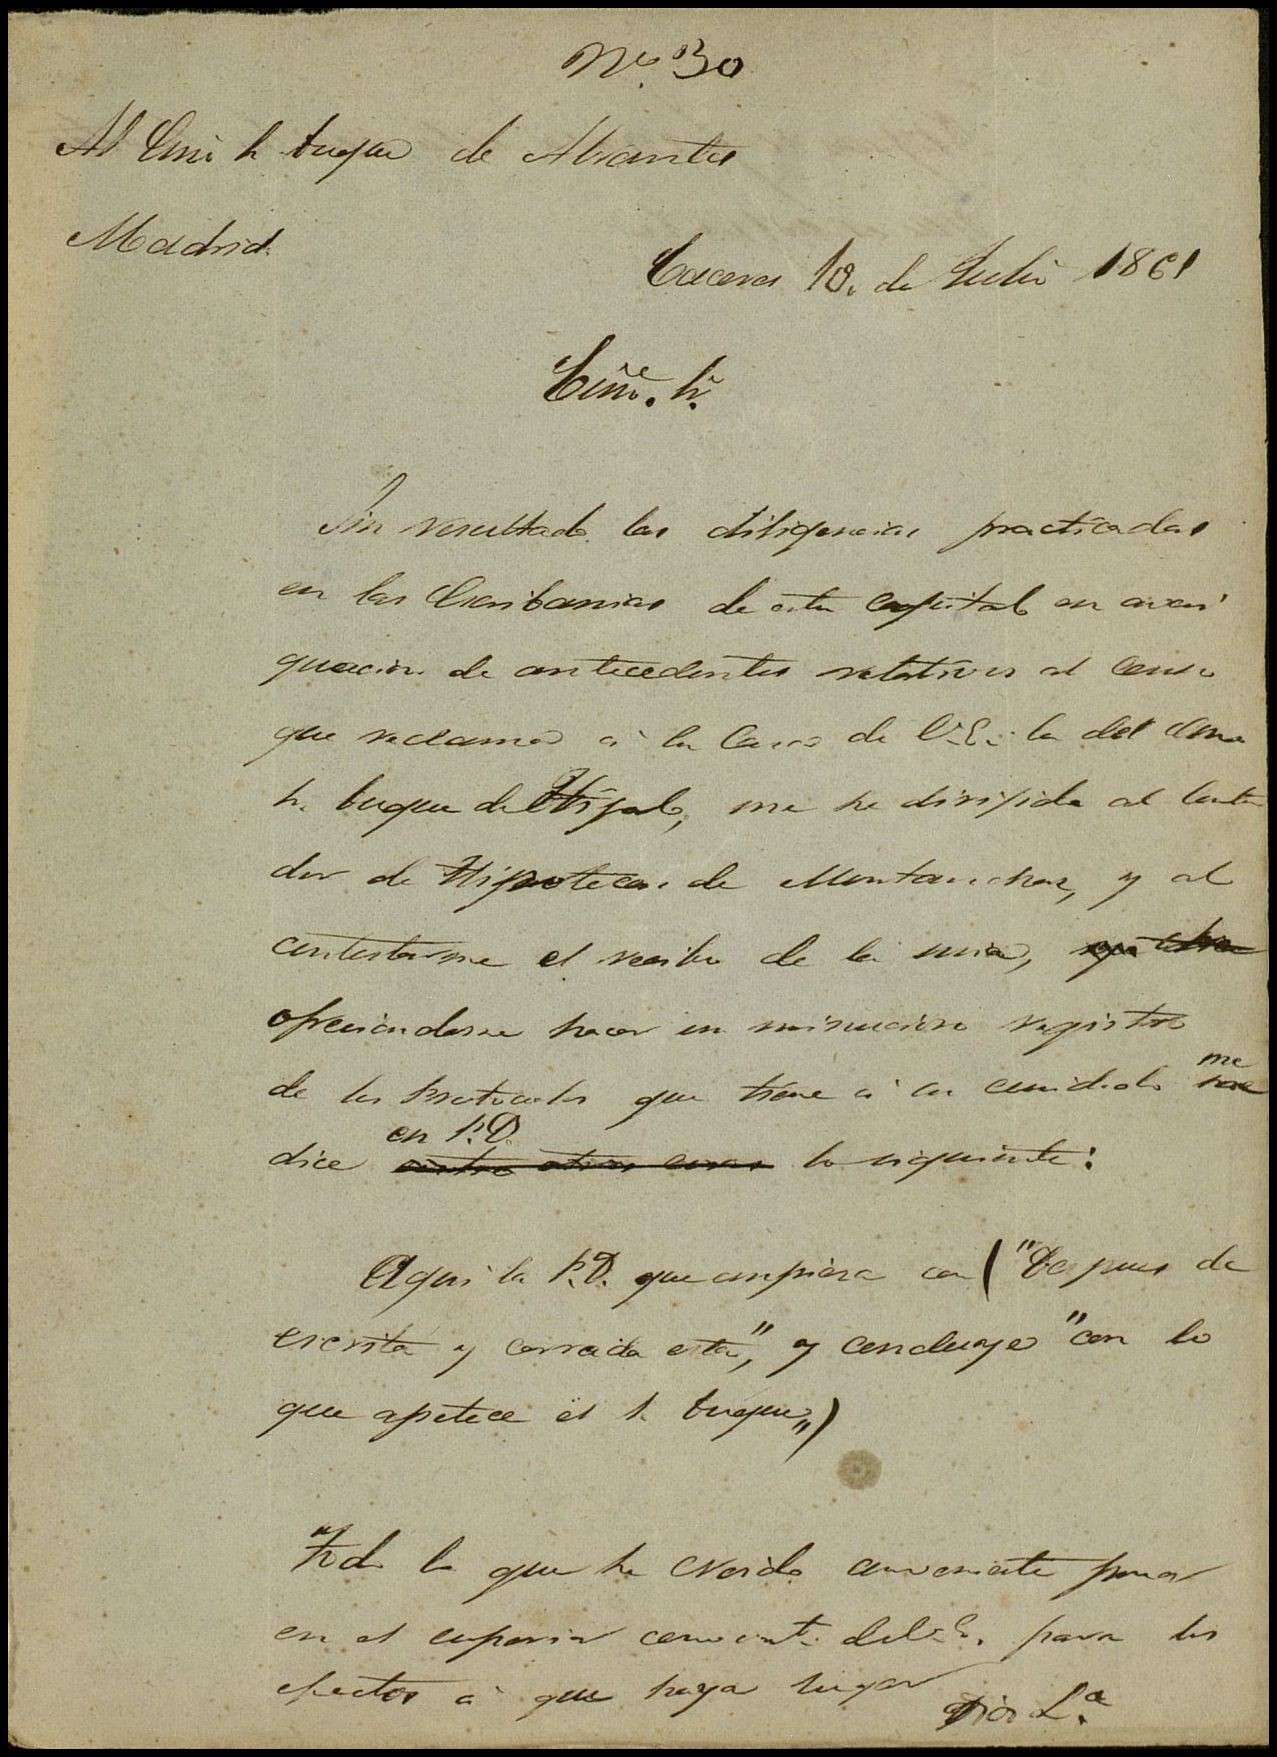 Nº 30
Al Excmo Sr Duque de Abrantes
Madrid.
Caceres 18. de Julio 1861
Excmo. Sr.
Sin resultado las diligencias practicadas
en las Escribanias de esta capital en averi
guacion de antecedentes relativos al censo
que reclama á la Casa de V.E. la del Excmo
Sr. Duque de Hijar, me he dirigido al Conta
dor de Hipotecas de Montanchez, y al
contestarme el recibo de la mia,
ofreciendose hacer un minucioso registro
de los Protocolos que tiene á su cuidado me
dice en P.D. entre otras cosas lo siguiente:
Aqui la P.D. que empieza con ("Despues de
escrita y cerrada esta", y concluye "con lo
que apetece el Sr. Duque")
Todo lo que he creido conveniente poner
en el superior conocimto. de V.E. para los
efectos á que haya lugar
Dios L.ª